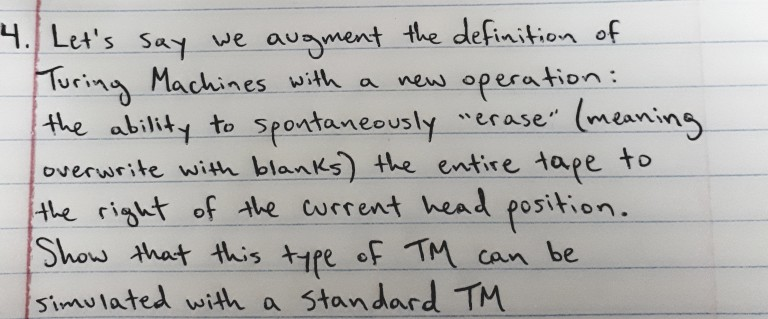 4. Let's say we augment the definition of
Turing Machines with a new operation:
the ability to spontaneously "erase" (meaning
overwrite with blanks) the entire tape to
the right of the current head position.
Show that this type of TM can be
simulated with a standard TM